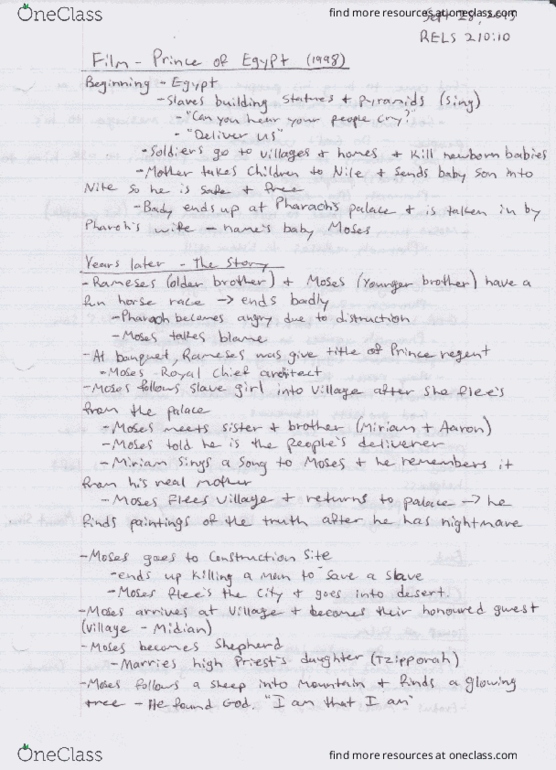 OneClass
find more resources at oneclass.com
RELS 210:10
Film - Prince of Egypt (1998)
Beginning - Egypt
- Slaves building Statues + Pyramids (Sing)
- "Can you hear your people cry?"
- "Deliver us"
- Soldiers go to villages + homes + kill newborn babies
- Mother takes children to Nile + sends baby son into
Nile so he is safe + free
- Bady ends up at Pharaoh's palace + is taken in by
Pharoh's wife - name's baby Moses
Years later - The Story
- Rameses (older brother) + Moses (younger brother) have a
fun horse race → ends badly
- Pharaoh becomes angry due to distruction
- Moses takes blame
- At banquet, Rameses was give title of Prince regent
- Moses - Royal Chief architect
- Moses follows slave girl into village after she flee's
from the palace
- Moses meets sister + brother (Miriam + Aaron)
- Moses told he is the people's deliverer
- Miriam sings a song to Moses + he remembers it
from his real mother
- Moses flees village + returns to palace → he
finds paintings of the truth after he has nightmare
- Moses goes to Construction Site
- ends up killing a man to save a slave
- Moses flee's the City + goes into desert.
- Moses arrives at Village + becomes their honoured guest
(Village - Midian)
- Moses becomes Shepherd
- Marries high Priest's daughter (Tzipporah)
- Moses follows a sheep into mountain + finds a glowing
tree - He found God. "I am that I am"
OneClass
find more resources at oneclass.com